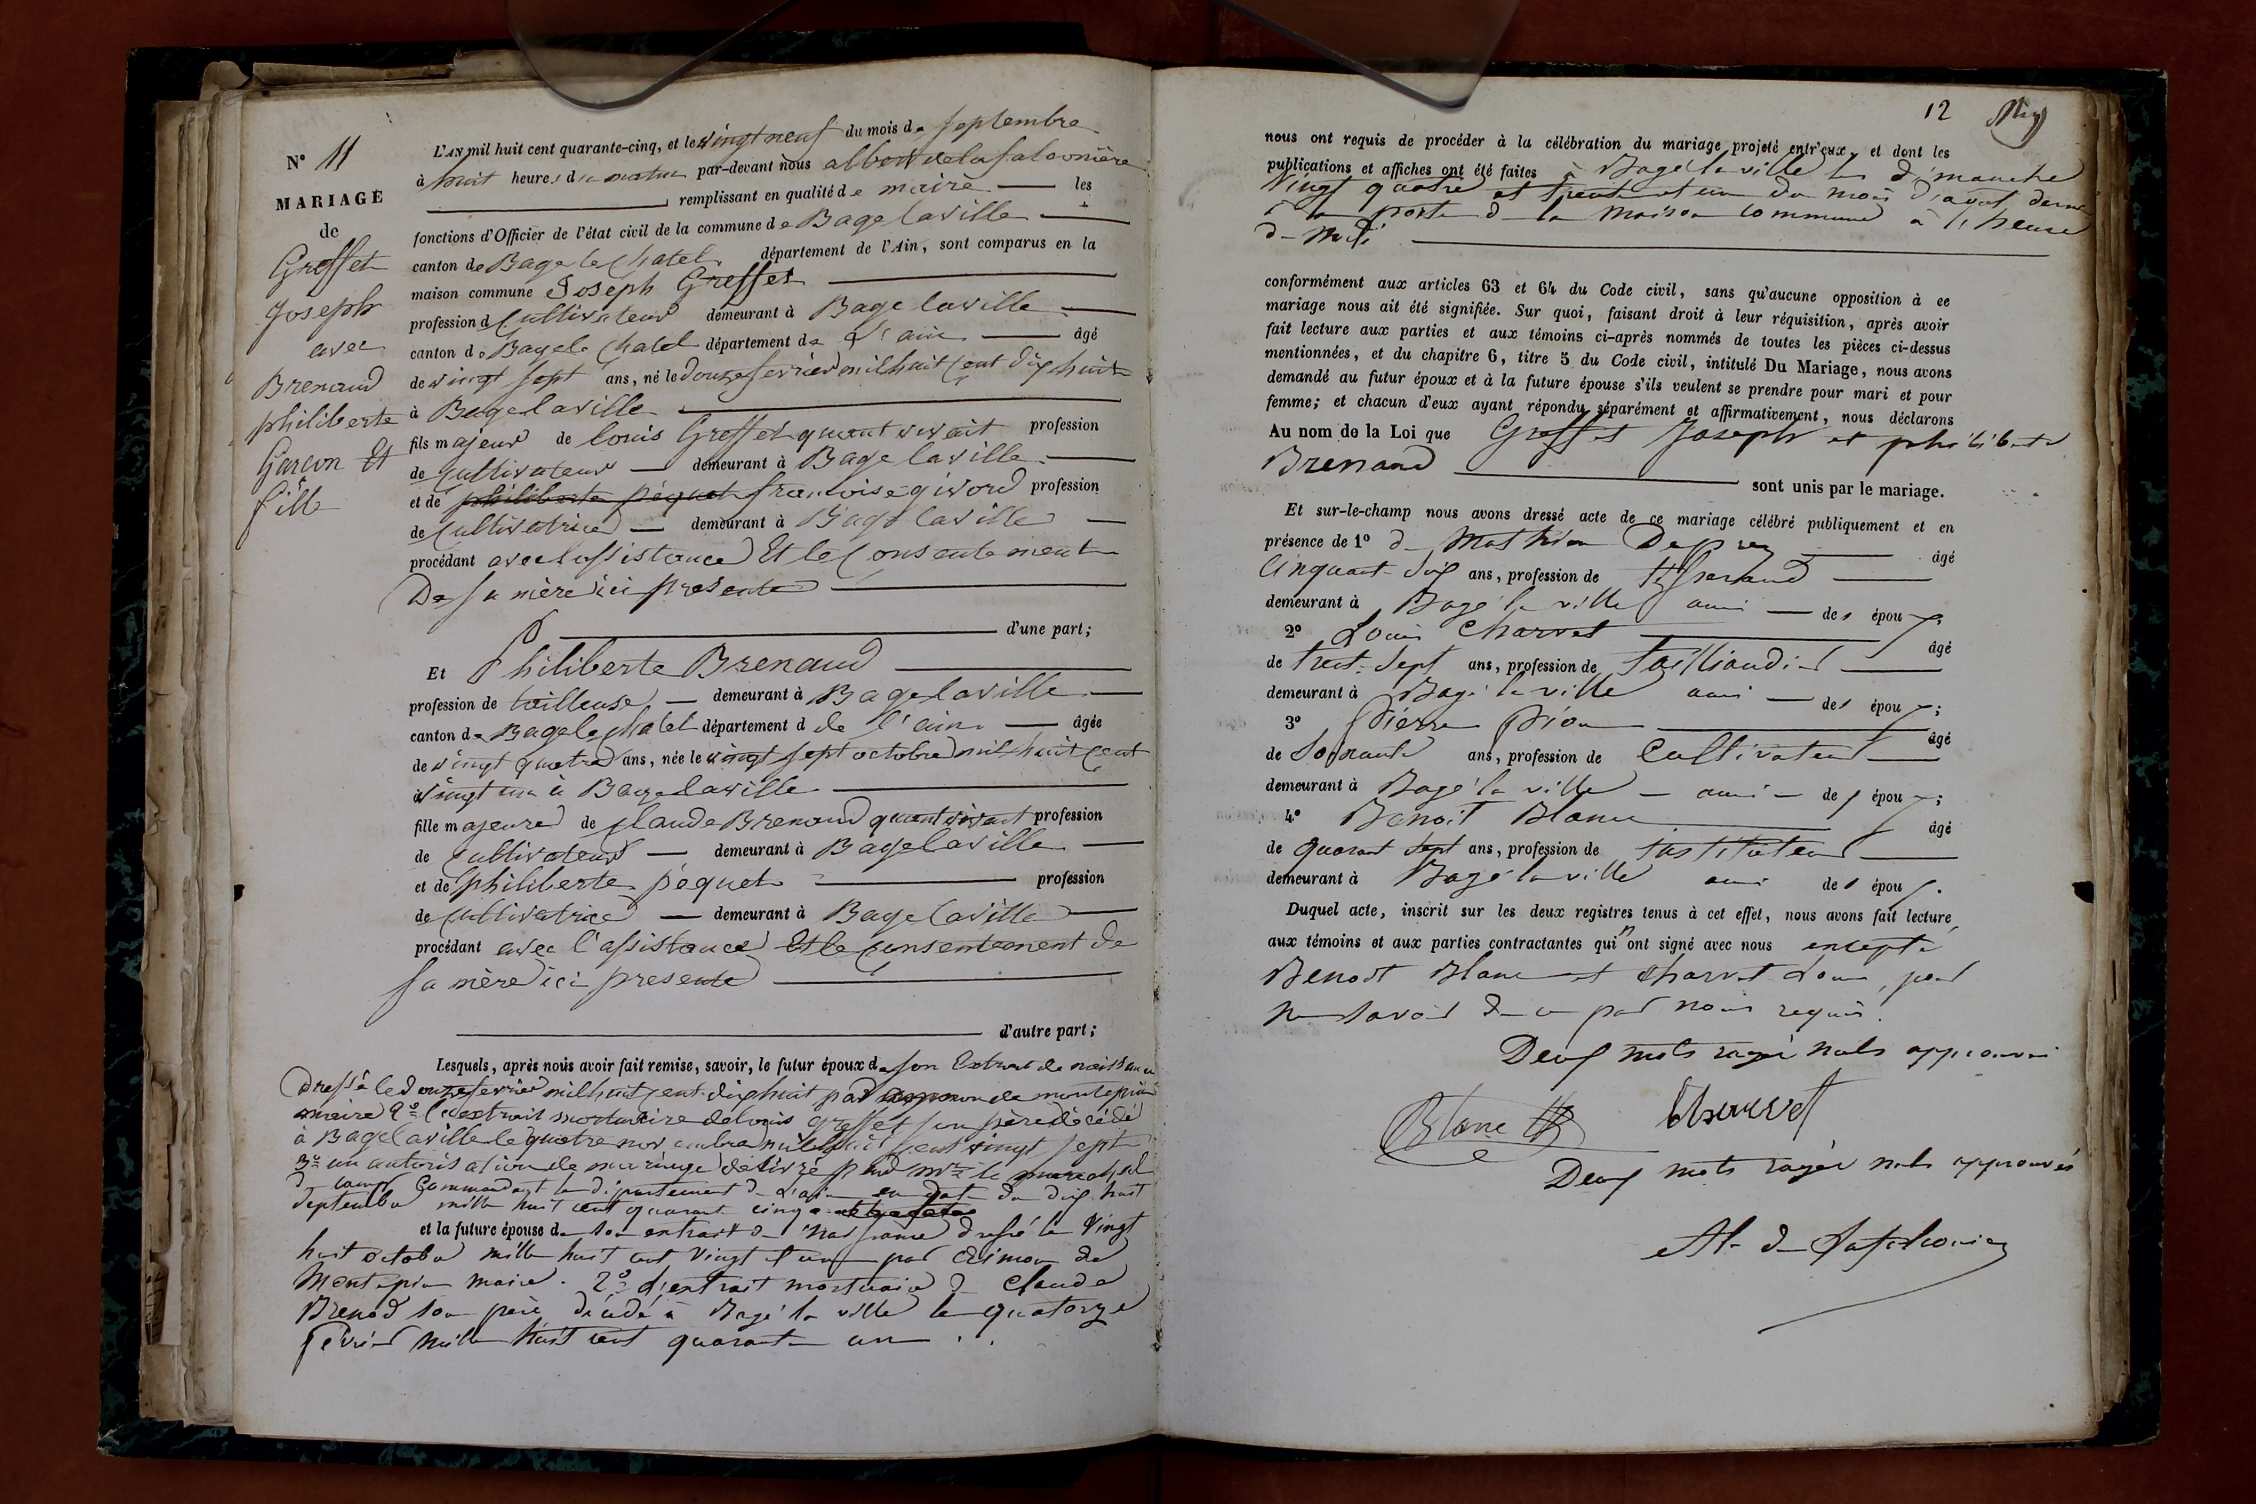 N° 11
MARIAGE
de
Greffet
Joseph
avec
Brenaud
philiberte
Garçon Et
fille
L'AN mil huit cent quarante-cinq, et le vingt neuf du mois de septembre
à huit heures du matin par-devant nous albon de lafalconnière
remplissant en qualité de maire les
fonctions d'Officier de l'état civil de la commune de Bage laville
canton de Bage le chatel département de l'Ain, sont comparus en la
maison commune Joseph Greffet
profession d cultivateur demeurant à Bage laville
canton de Bage le chatel département de L'ain âgé
de vingt sept ans, né le douze fevrier mil huit cent dix huit
à Bage laville
fils majeur de louis Greffet quant vivait profession
de cultivateur demeurant à Bage laville
et de philiberte péquet francoise givord profession
de cultivatrice demeurant à Bage laville
procédant avec l'assistance Et le consentement
De sa mère ici presente
d'une part;
Et Philiberte Brenaud
profession de tailleuse demeurant à Bage laville
canton de Bage le chatel département d de l'ain âgée
de vingt quatre ans, née le vingt sept octobre mil huit cent
vingt un à Bage laville
fille majeure de claude Brenaud quant vivait profession
de cultivateur demeurant à Bage laville
et de philiberte péquet profession
de cultivatrice demeurant à Bage laville
procédant avec l'assistance Et le consentement de
sa mère ici presente
d'autre part;
Lesquels, après nous avoir fait remise, savoir, le futur époux de son Extrait de naissance
Dressé le douze fevrier mil huit cent dix huit par de montepin
maire 2° l'extrait mortuaire de louis greffet son père décédé
à Bage laville le quatre novembre mil huit cent vingt sept
3° un autorisation de mariage délivré par Mr le marechal
de camp Commandant le département de L'ain en date du dix huit
septembre mille huit cent quarante cinq
et la future épouse de son extrait de naissance dressé le vingt
huit octobre mille huit cent vingt et un par Aimon de
Montepin maire. 2° L'extrait mortuaire de Claude
Brenod son père décédé à Bagé la ville le quatorze
février mille huit cent quarante un.
12
nous ont requis de procéder à la célébration du mariage projeté entr'eux, et dont les
publications et affiches ont été faites à Bagé la ville les dimanche
Vingt quatre et trente et un du mois d'aout dernier
à la porte de la maison commune à l'heure
de midi
conformément aux articles 63 et 64 du Code civil, sans qu'aucune opposition à ce
mariage nous ait été signifiée. Sur quoi, faisant droit à leur réquisition, après avoir
fait lecture aux parties et aux témoins ci-après nommés de toutes les pièces ci-dessus
mentionnées, et du chapitre 6, titre 5 du Code civil, intitulé Du Mariage, nous avons
demandé au futur époux et à la future épouse s'ils veulent se prendre pour mari et pour
femme; et chacun d'eux ayant répondu séparément et affirmativement, nous déclarons
Au nom de la Loi que Greffet Joseph et philiberte
Brenaud sont unis par le mariage.
Et sur-le-champ nous avons dressé acte de ce mariage célébré publiquement et en
présence de 1° de Mathieu Deprez âgé
cinquante six ans, profession de tisserand
demeurant à Bagé la ville ami des époux;
2° Louis Charvet âgé
de trente sept ans, profession de Tailliandier
demeurant à Bagé la ville ami des époux;
3° Pierre Pion âgé
de Soixante ans, profession de Cultivateur
demeurant à Bagé la ville ami des époux;
4° Benoit Blanc âgé
de quarante sept ans, profession de Instituteur
demeurant à Bagé la ville ami des époux.
Duquel acte, inscrit sur les deux registres tenus à cet effet, nous avons fait lecture,
aux témoins et aux parties contractantes qui n'ont signé avec nous excepté
Benoit Blanc et Charvet Louis, pour
ne savoir de ce par nous requis.
Deux mots rayés nuls approuvés
Blanc Charvet
Deux mots rayés nuls approuvés
Al. de Lafalconnière